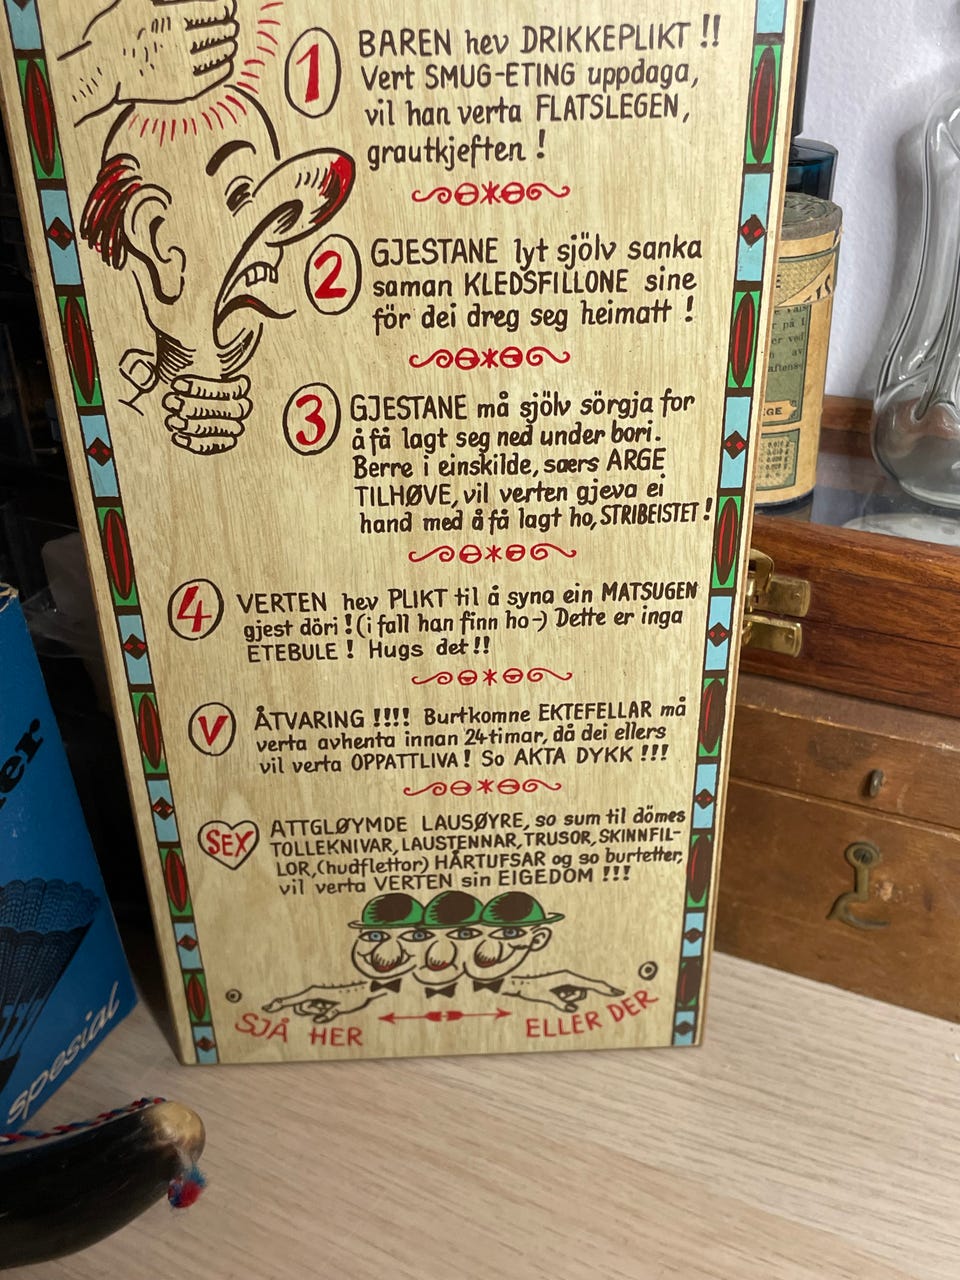 1
BAREN hev DRIKKEPLIKT !!
Vert SMUG-ETING uppdaga,
vil han verta FLATSLEGEN,
grautkjeften !
2
GJESTANE lyt sjölv sanka
saman KLEDSFILLONE sine
för dei dreg seg heimatt !
3
GJESTANE må sjölv sörgja for
å få lagt seg ned under bori.
Berre i einskilde, særs ARGE
TILHØVE, vil verten gjeva ei
hand med å få lagt ho, STRIBEISTET !
4
VERTEN hev PLIKT til å syna ein MATSUGEN
gjest döri ! (i fall han finn ho-) Dette er inga
ETEBULE ! Hugs det !!
V
ÅTVARING !!!! Burtkomne EKTEFELLAR må
verta avhenta innan 24 timar, då dei ellers
vil verta OPPATTLIVA ! So AKTA DYKK !!!
SEX
ATTGLØYMDE LAUSØYRE, so sum til dömes
TOLLEKNIVAR, LAUSTENNAR, TRUSOR, SKINNFIL-
LOR, (hudflettor) HÅRTUFSAR og so burtetter,
vil verta VERTEN sin EIGEDOM !!!
SJÅ HER
ELLER DER
er
spesial
på
er ved
av
aftens-
GE